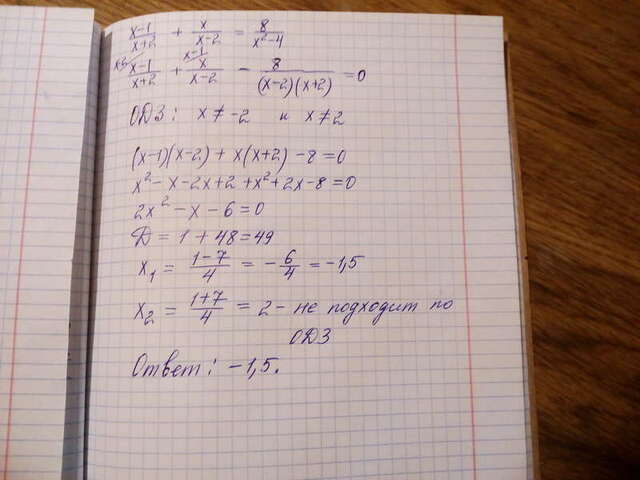 x-1/x+2 + x/x-2 = 8/x²-4
x-1/x+2 + x/x-2 - 8/(x-2)(x+2) = 0
ОДЗ: x ≠ -2 и x ≠ 2
(x-1)(x-2) + x(x+2) - 8 = 0
x² - x - 2x + 2 + x² + 2x - 8 = 0
2x² - x - 6 = 0
Д = 1 + 48 = 49
x₁ = 1-7/4 = - 6/4 = -1,5
x₂ = 1+7/4 = 2 - не подходит по
ОДЗ
Ответ: -1,5.